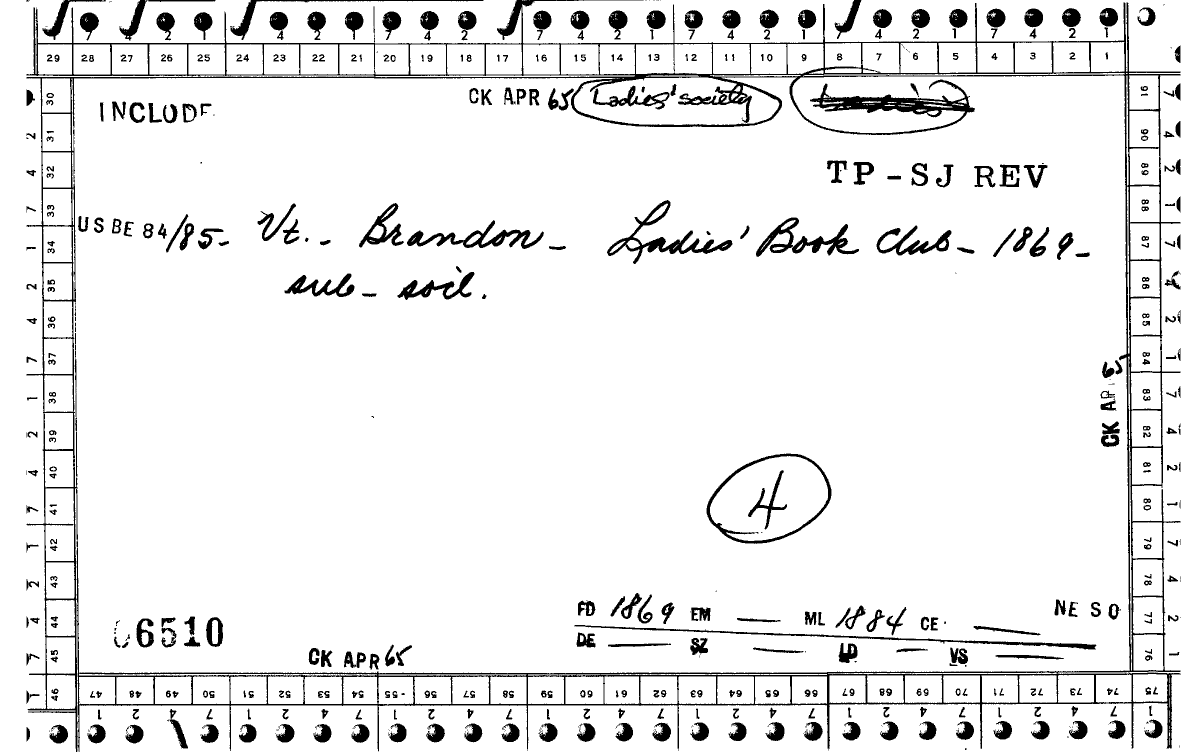 7 4 2 1 7 4 2 1 7 4 2 1 7 4 2 1 7 4 2 1 7 4 2 1 7 4 2 1
29 28 27 26 25 24 23 22 21 20 19 18 17 16 15 14 13 12 11 10 9 8 7 6 5 4 3 2 1
INCLUDE CK APR 65 Ladies' society
TP-SJ REV
US BE 84/85- Vt.- Brandon- Ladies' Book Club- 1869-
sub-soil.
4
CK AP 65
FD 1869 EM — ML 1884 CE — NE SO
DE — SZ — LD — VS —
06510
CK APR 65
30 31 32 33 34 35 36 37 38 39 40 41 42 43 44 45 46
91 90 89 88 87 86 85 84 83 82 81 80 79 78 77 76 75
47 48 49 50 51 52 53 54 55 56 57 58 59 60 61 62 63 64 65 66 67 68 69 70 71 72 73 74 75